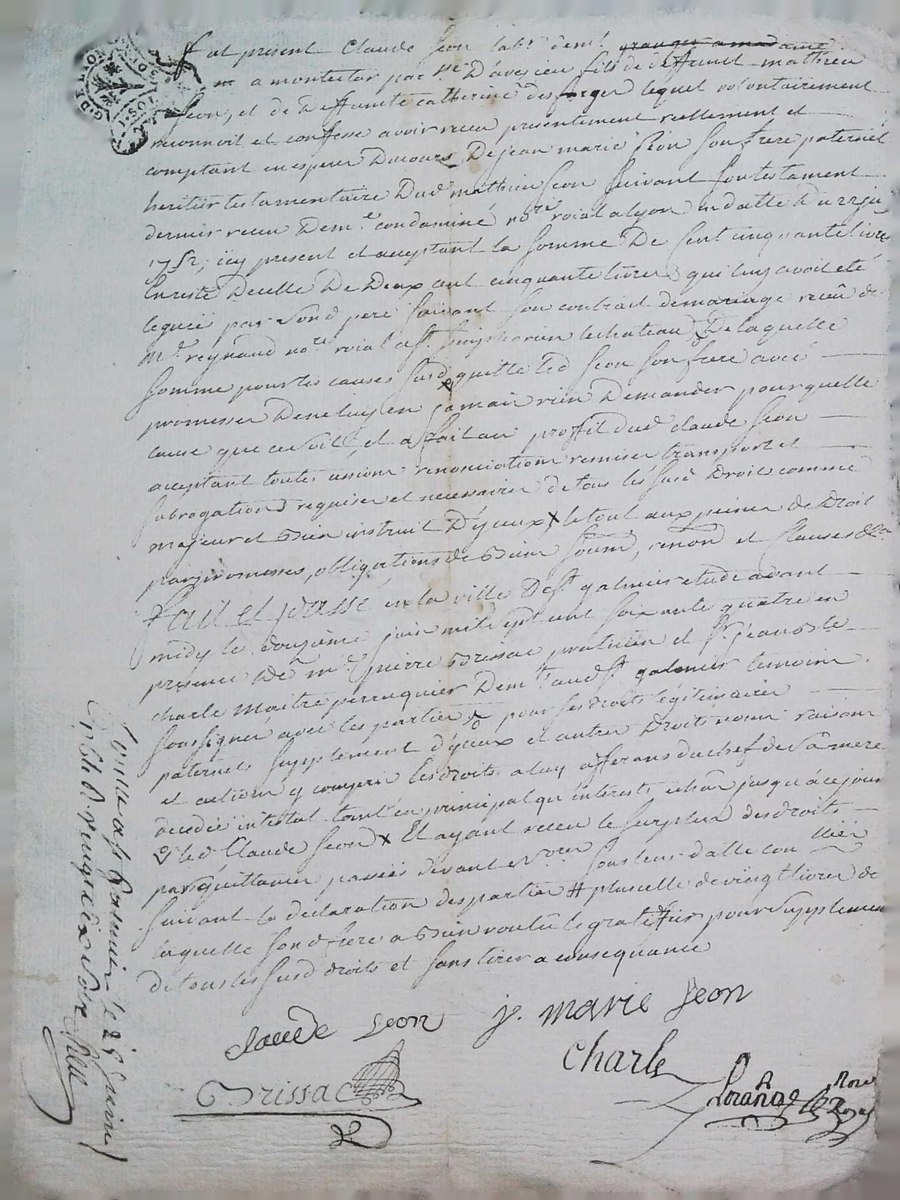 fut present Claude Jeon lab.r dem.t granger a madame
a montertar par.sse Daveseu fils de deffunct mathieu
Jeon, et de deffuncte catherine desforger lequel volontairement
reconnoit et confesse avoir receu presentement reellement et
comptant en especes Ducours, De jean marie Jeon son frere paternel
heritier testamentaire Dud mathieu Jeon suivant son testament
dernier receu Dem.e condaminé no.re roial a lyon en datte Du
1752, icy present et acceptant la somme De Cent cinquante livres
En reste De celle De Deux cent cinquante livres qui luy avoit eté
leguée par sond pere suivant son contrait demariage receu de
M.e reynaud no.re roial a s.t simphorien lechateau, De laquelle
somme pour les causes susd quitte led Jeon son frere avec
promesse Dene luy en jamais rien Demander pour quelle
cause que ce soit, et a fait au proffit dud claude Jeon
acceptant toutes cessions renonciations remises transport et
subrogations requises et necessaires de tous les susd Droits comme
majeur et bien instruit D'yceux x le tout aux peines de Droit
par promesses, obligations de biens soum, renon et clauses &.a
Fait et passé en la ville De s.t galmier etude avant
midy le douzieme juin mil sept cent soixante quatre en
presence De m.e pierre Brissac praticien et s.r jean
charle Maitre perruquier Dem.t aud s.t galmier temoins
soussignés avec les parties pour ses droits légitimaires
paternels supplement d'yceux et autres Droits noms raisons
et actions y compris les droits a luy afferans du chef de sa mere
decedée intestat tant en principal qu'interests echûs jusqu'a ce jour
led Claude Jeon x Et ayant receu le surplus desdroits
par quittances passées devant Nore sous leurs datte con
suivant la declaration des parties # plus celle de vingt livres de
laquelle sond frere a bien voulu le gratiffier pour supplement
de tous les susd droits et sans tirer a consequence
claude Jeon
j. marie Jeon
Brissac
charle
Nore
Roial
Le 25 juin